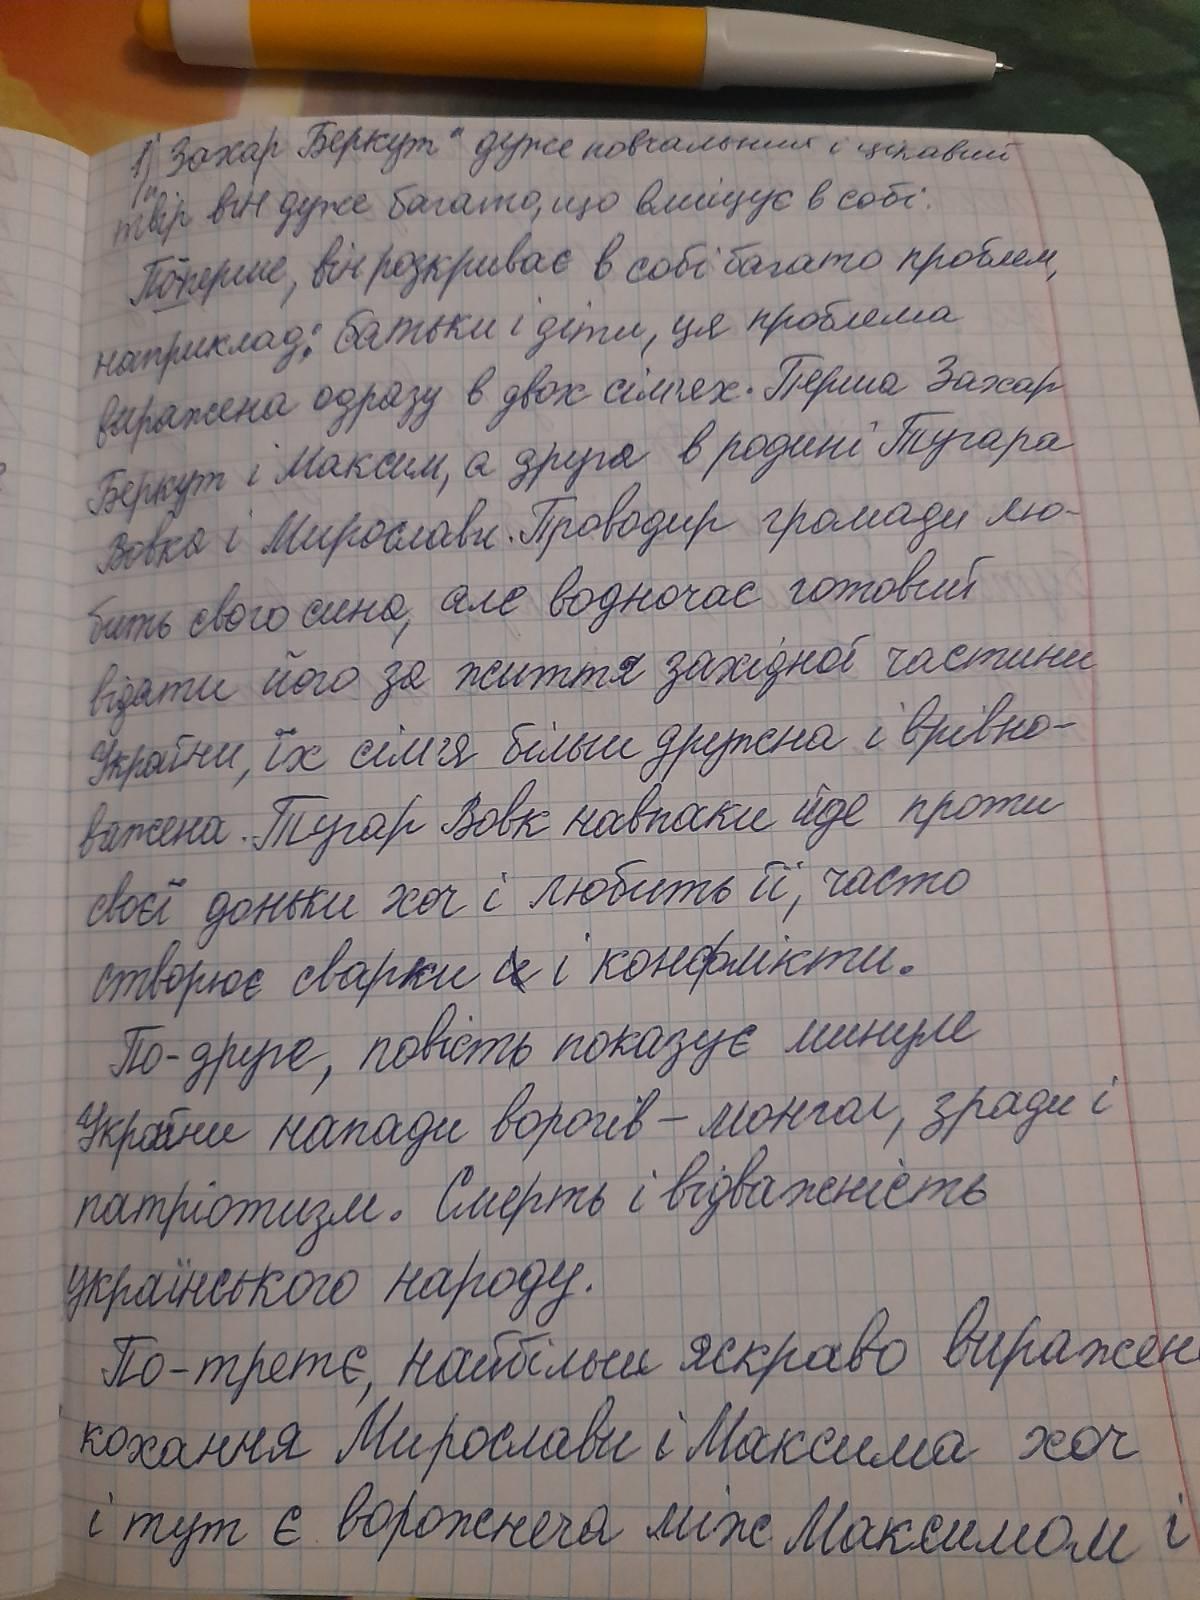 1) "Захар Беркут" дуже повчальний і цікавий
твір він дуже багато, що вміщує в собі.
По-перше, він розкриває в собі багато проблем,
наприклад: батьки і діти, ця проблема
виражена одразу в двох сім'ях. Перша Захар
Беркут і Максим, а друга в родині Тугара
Вовка і Мирослави. Проводир громади лю-
бить свого сина, але водночас готовий
відати його за життя західної частини
України, їх сім'я більш дружна і врівно-
важена. Тугар Вовк навпаки йде проти
своєї доньки хоч і любить її, часто
створює сварки і конфлікти.
По-друге, повість показує минуле
України напади ворогів - монгол, зради і
патріотизм. Смерть і відважність
українського народу.
По-третє, найбільш яскраво виражене
кохання Мирослави і Максима хоч
і тут є ворожнеча між Максимом і